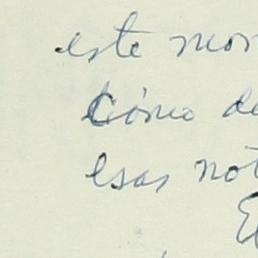 este mom
Cómo de
esas not
El